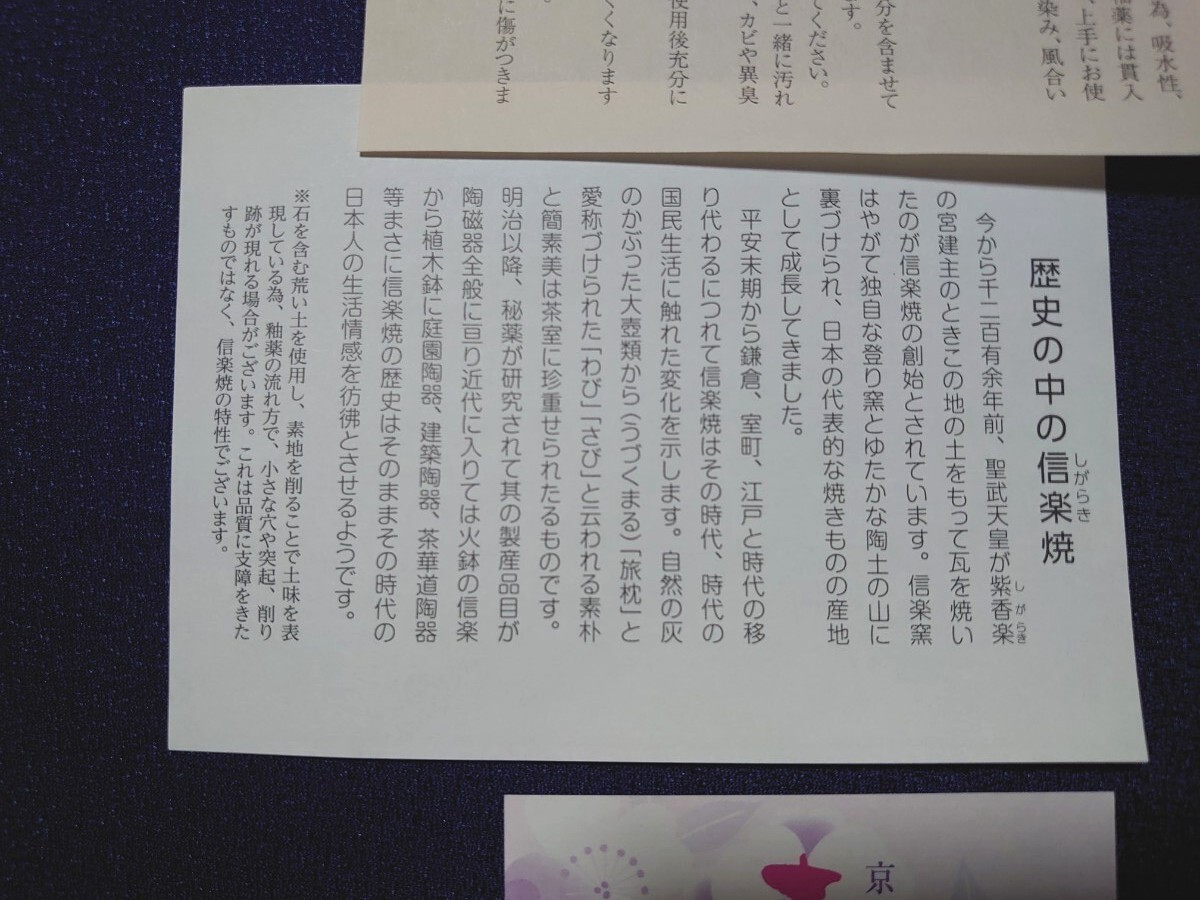 為、吸水性、
釉薬には貫入
、上手にお使
染み、風合い
分を含ませて
す。
てください。
と一緒に汚れ
、カビや異臭
使用後充分に
くくなります
に傷がつきま
歴史の中の信楽焼
しがらき
今から千二百有余年前、聖武天皇が紫香楽
しがらき
の宮建主のときこの地の土をもって瓦を焼い
たのが信楽焼の創始とされています。信楽窯
はやがて独自な登り窯とゆたかな陶土の山に
裏づけられ、日本の代表的な焼きものの産地
として成長してきました。
平安末期から鎌倉、室町、江戸と時代の移
り代わるにつれて信楽焼はその時代、時代の
国民生活に触れた変化を示します。自然の灰
のかぶった大壺類から(うづくまる)「旅枕」と
愛称づけられた「わび」「さび」と云われる素朴
と簡素美は茶室に珍重せられたるものです。
明治以降、秘薬が研究されて其の製産品目が
陶磁器全般に亘り近代に入りては火鉢の信楽
から植木鉢に庭園陶器、建築陶器、茶華道陶器
等まさに信楽焼の歴史はそのままその時代の
日本人の生活情感を彷彿とさせるようです。
※石を含む荒い土を使用し、素地を削ることで土味を表
現している為、釉薬の流れ方で、小さな穴や突起、削り
跡が現れる場合がございます。これは品質に支障をきた
すものではなく、信楽焼の特性でございます。
京